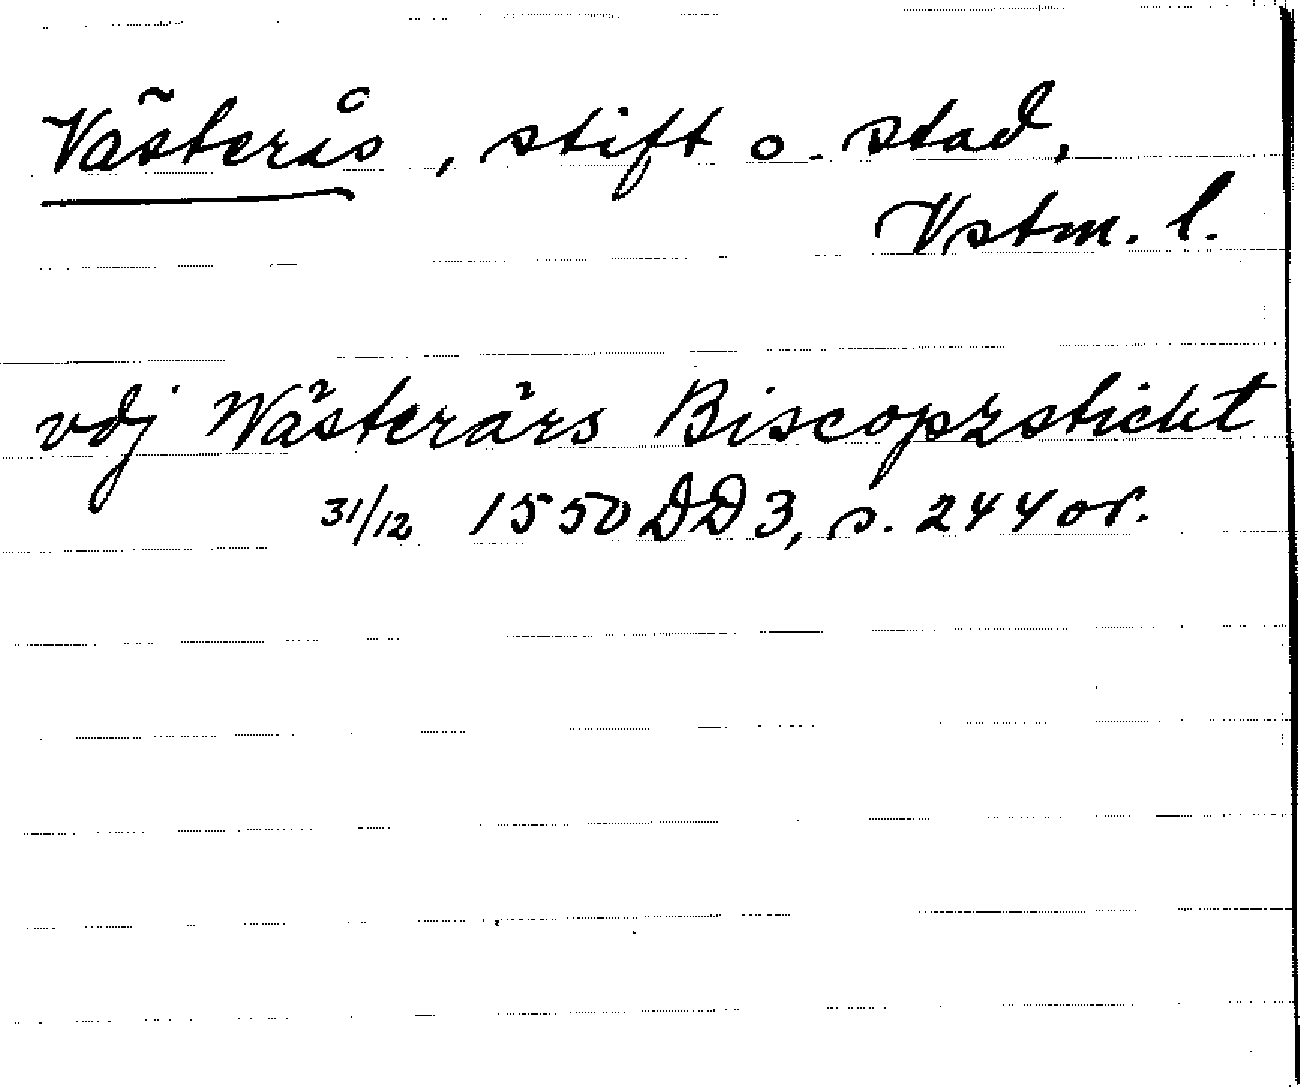 Västerås, stift o. stad,
Vstm. l.
vdj Wästerårs Biscopzsticht
31/12 1550 DD 3, s. 244 or.